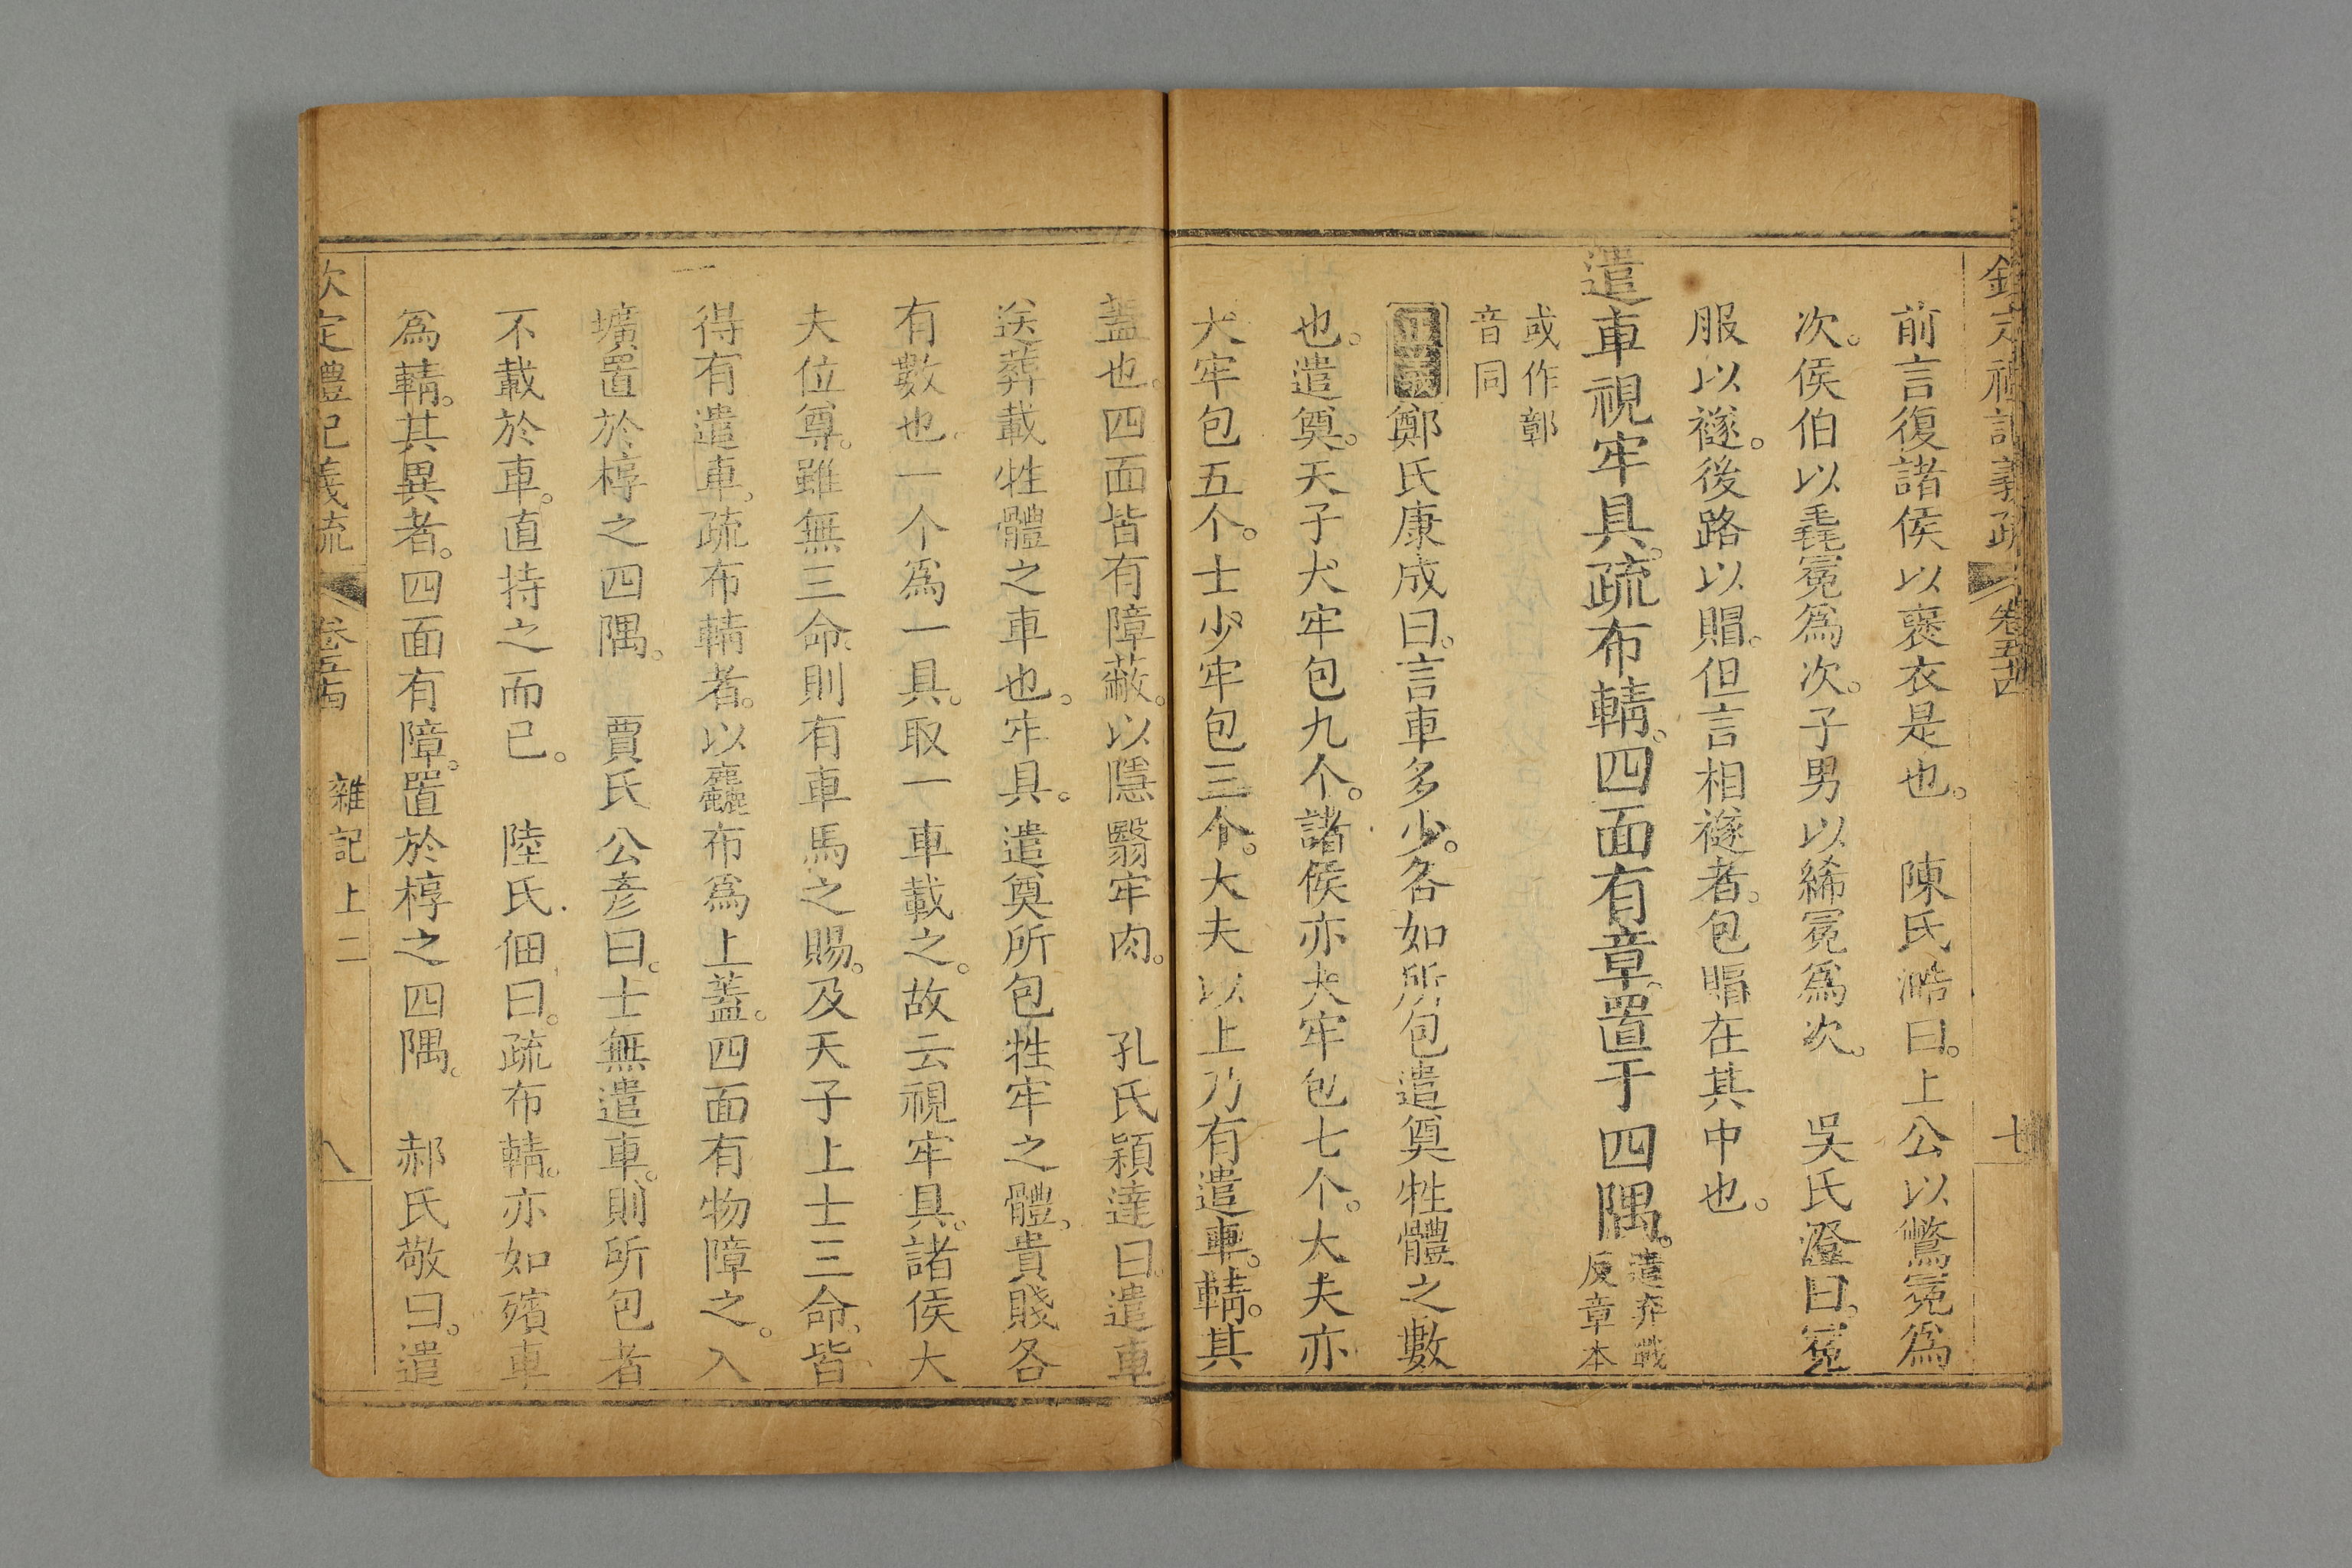 欽定禮記義疏 卷五十四 七
前言復諸侯以襃衣是也。 陳氏澔曰。上公以鷩冕爲
次。侯伯以毳冕爲次。子男以絺冕爲次。 吳氏澄曰。冕
服以襚。後路以賵。但言相襚者。包賵在其中也。
遣車視牢具。疏布輤。四面有章。置于四隅。遣弃戰
反章本
或作鄣
音同
正義鄭氏康成曰。言車多少。各如所包遣奠牲體之數
也。遣奠。天子大牢包九个。諸侯亦大牢包七个。大夫亦
大牢包五个。士少牢包三个。大夫以上乃有遣車。輤。其
蓋也。四面皆有障蔽。以隱翳牢肉。 孔氏穎達曰。遣車
送葬載牲體之車也。牢具。遣奠所包牲牢之體。貴賤各
有數也。一个爲一具。取一車載之。故云視牢具。諸侯大
夫位尊。雖無三命。則有車馬之賜。及天子上士三命。皆
得有遣車。疏布輤者。以麤布爲上蓋。四面有物障之。入
壙置於椁之四隅。 賈氏公彥曰。士無遣車。則所包者
不載於車。直持之而已。 陸氏佃曰。疏布輤。亦如殯車
爲輤。其異者。四面有障。置於椁之四隅。 郝氏敬曰。遣
欽定禮記義疏 卷五十四 雜記上二 八